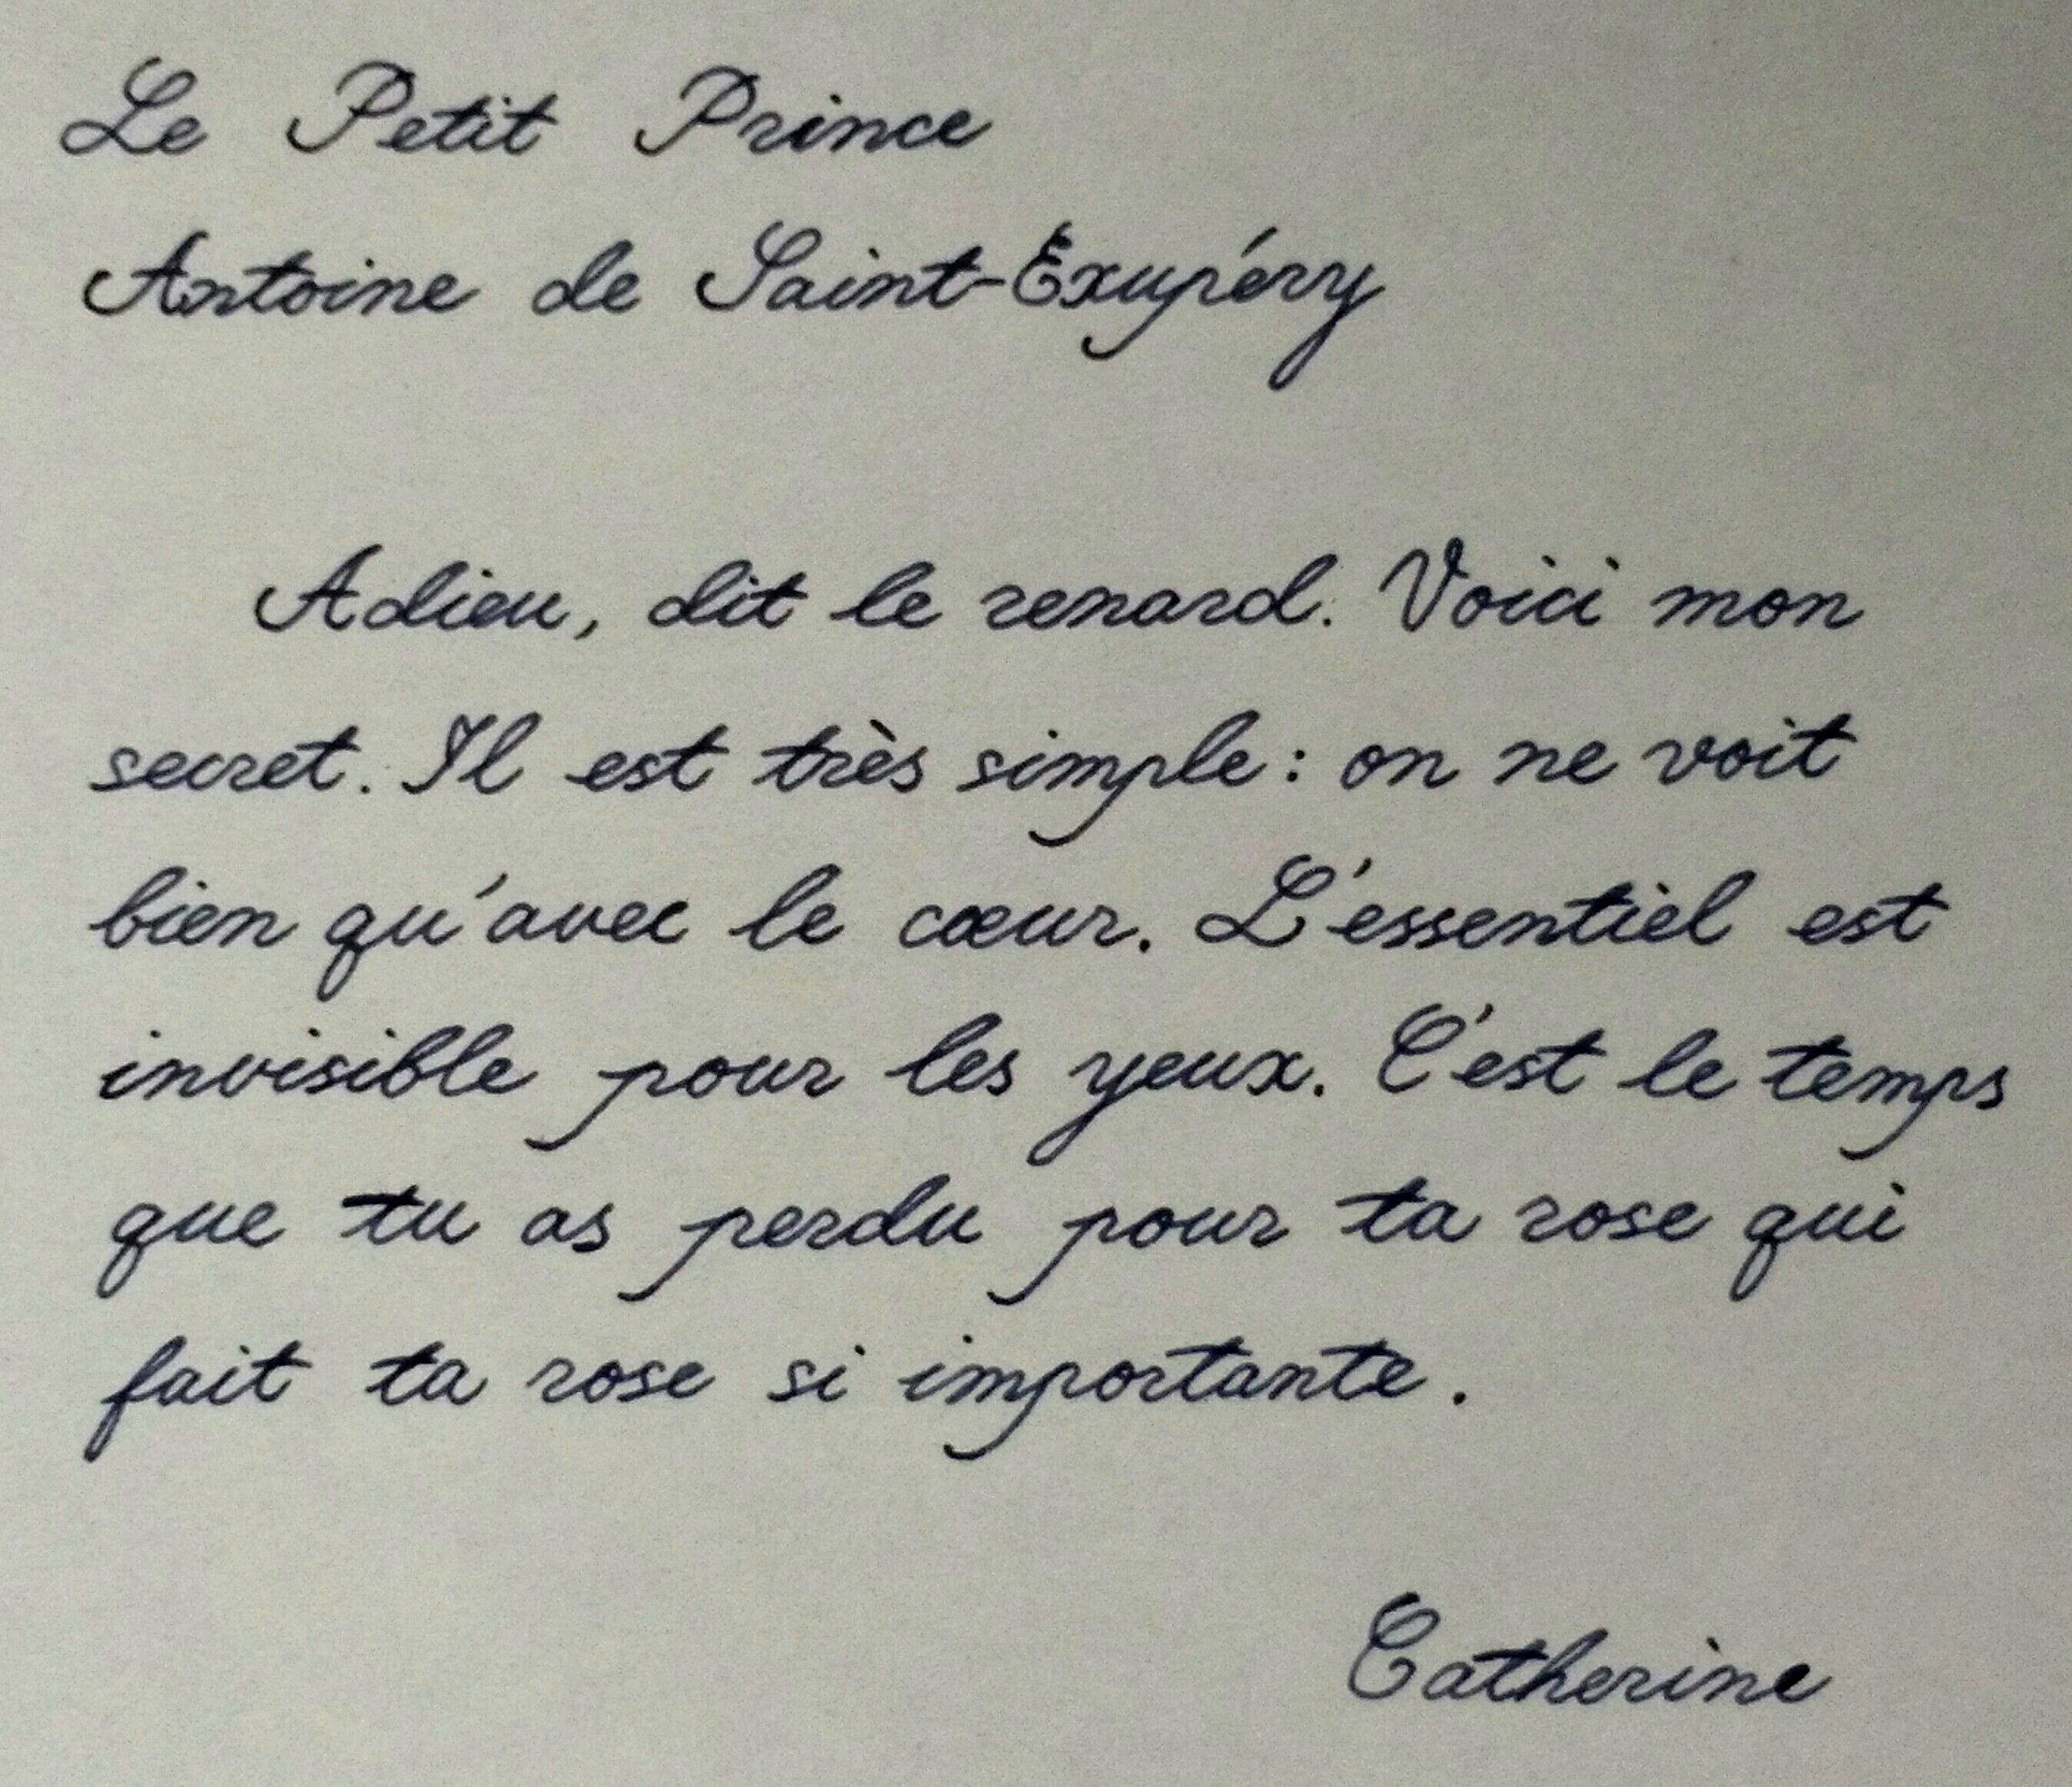 Le Petit Prince
Antoine de Saint-Éxupéry
Adieu, dit le renard. Voici mon
secret. Il est très simple : on ne voit
bien qu'avec le cœur. L'essentiel est
invisible pour les yeux. C'est le temps
que tu as perdu pour ta rose qui
fait ta rose si importante.
Catherine